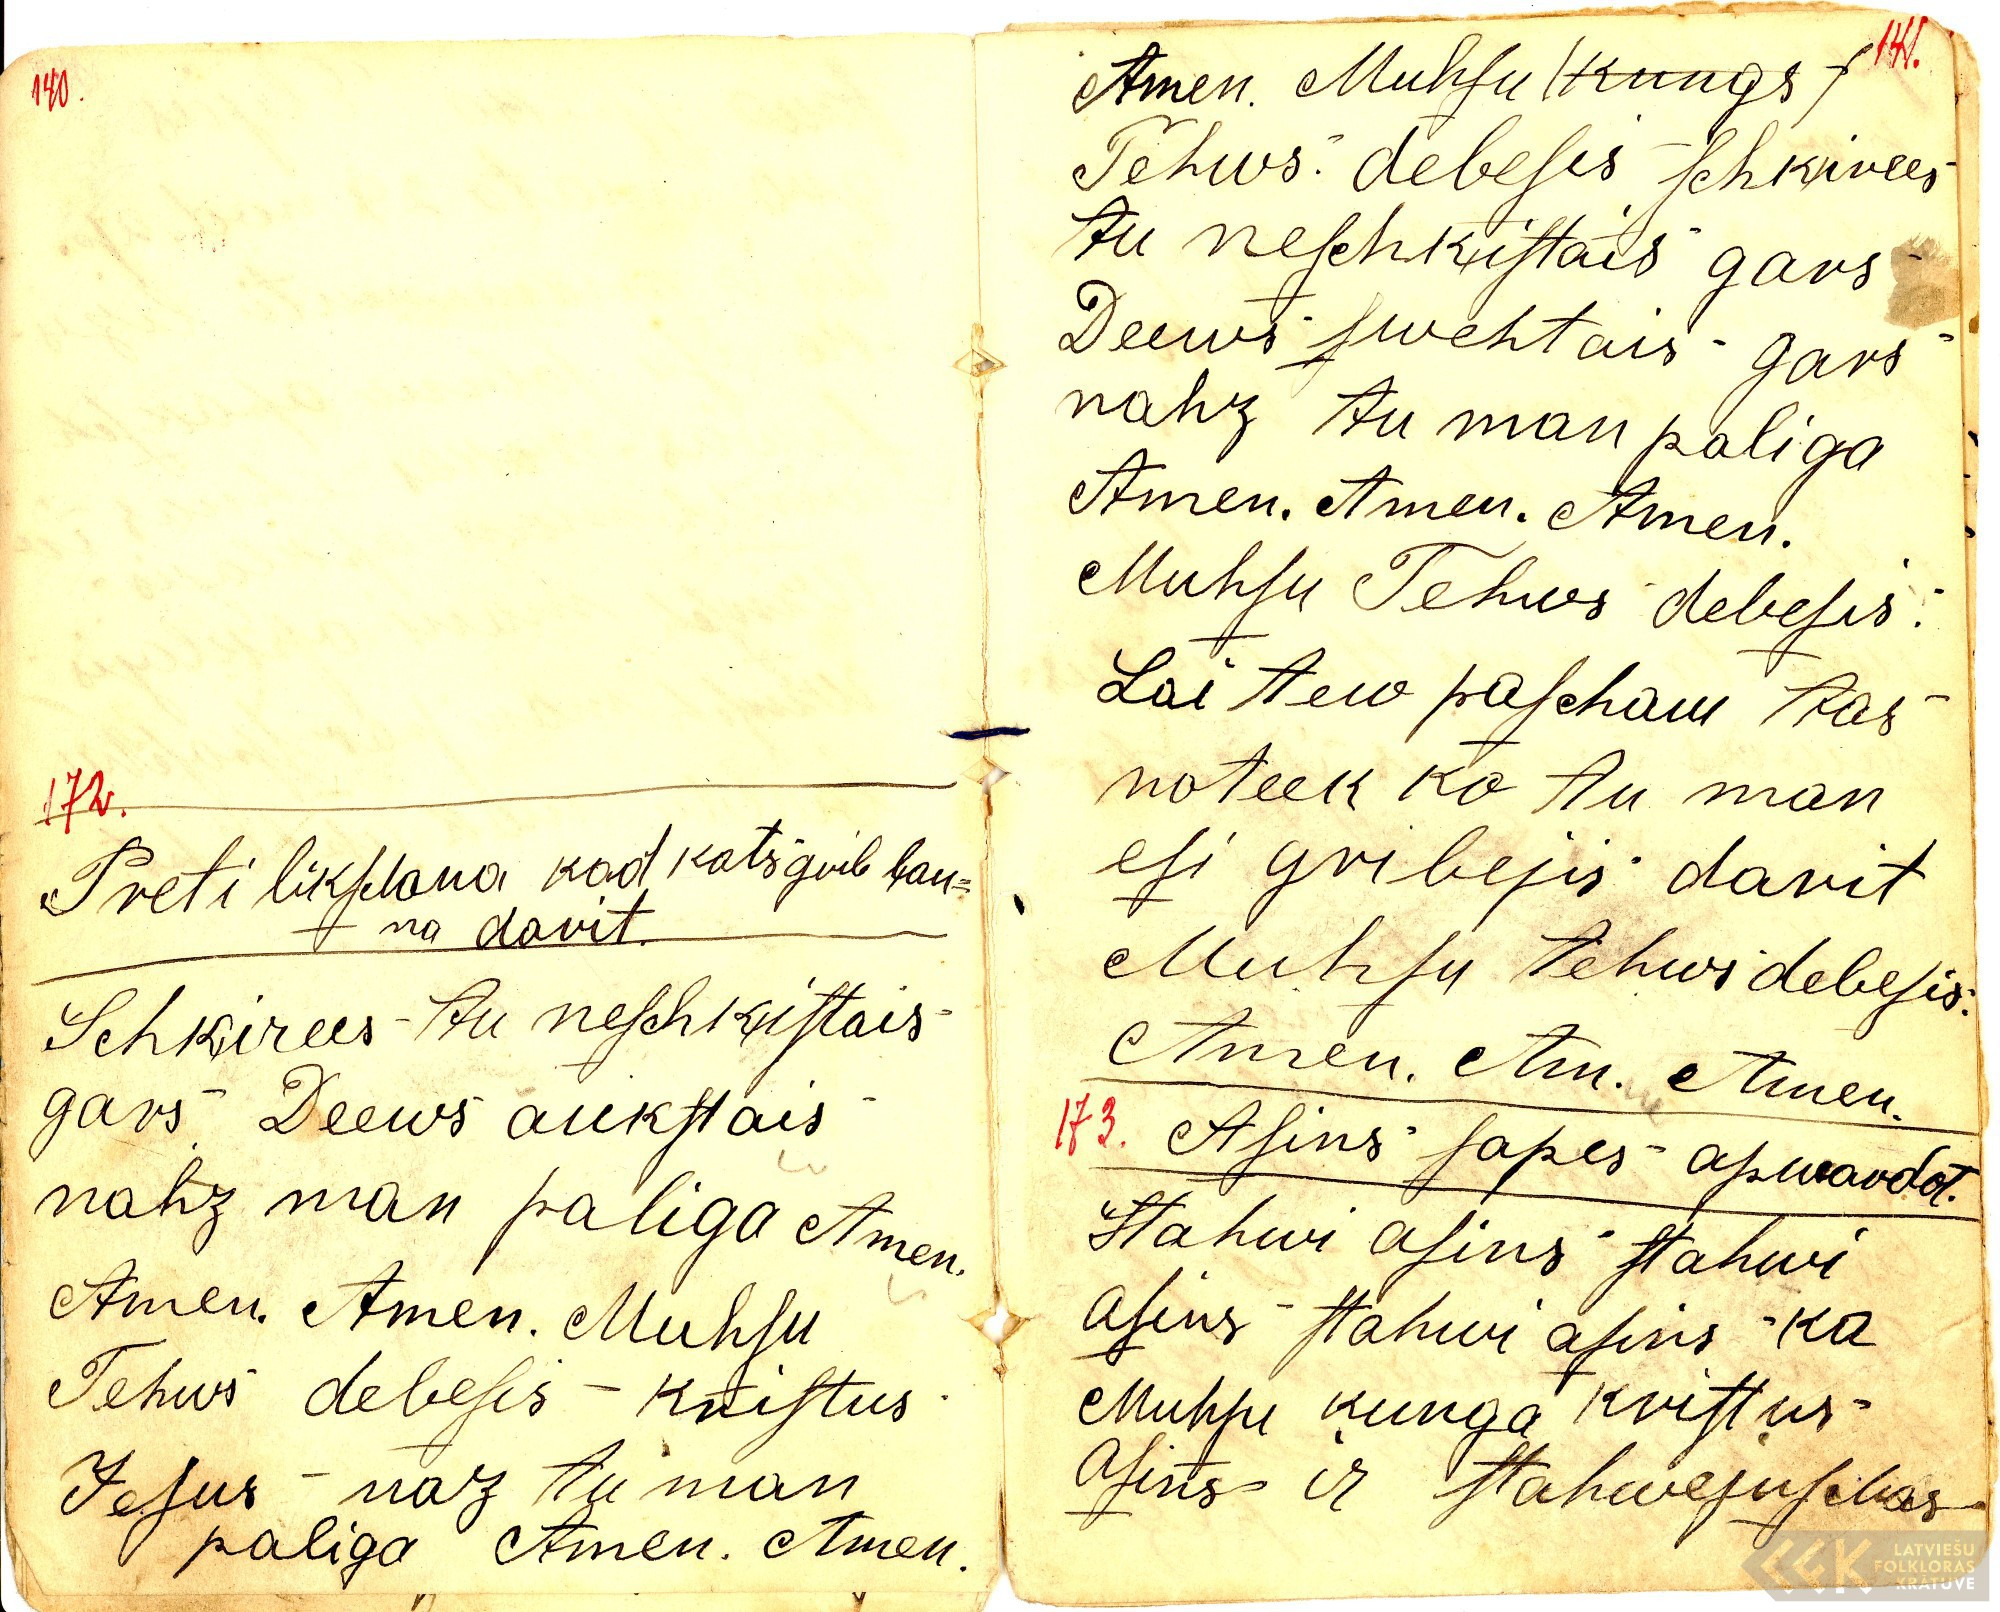 140.
172.
Preti likſchana kad kats grib lau=
na darit.
Schkirees tu neſchkiſtais
gars Deews aukſtais
nahz man paliga Amen.
Amen. Amen. Muhſu
Tehws debeſis - kriſtus
Jeſus - naz tu man
paliga Amen. Amen.
141.
Amen. Muhſu (kungs)
Tehws debeſis ſchkirees
tu neſchkiſtais gars
Deews ſwehtais gars
nahz tu man paliga
Amen. Amen. Amen.
Muhſu Tehws debeſis:
Lai tew paſcham tas
noteek ko tu man
eſi gribejis darit
Muhſu tehws debeſis:
Amen. Am. Amen.
173. Aſins ſapes apwardot.
Stahwi aſins ſtahwi
aſins ſtahwi aſins ka
Muhſu kunga kriſtus
aſins ir ſtahwejuſchas
LATVIEŠU
FOLKLORAS
KRĀTUVE